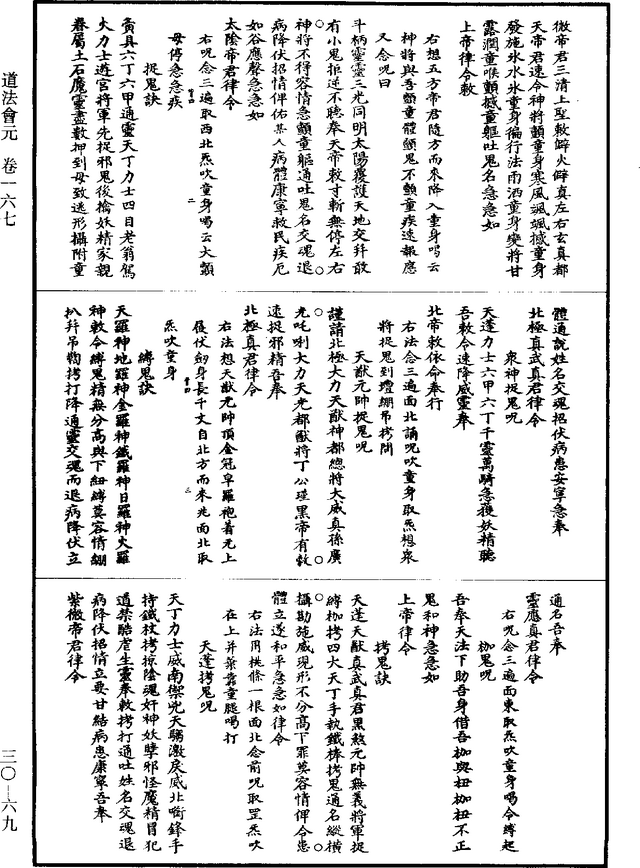 道法會元　卷一六七
三〇—六九
微帝君三清上聖敕縛火縛真左右玄真都
天帝君速令神將顫童身寒風颯颯撼童身
發施氷水氷童身徧行法雨洒童身變將甘
露潤童喉顫撼童軀吐鬼名急急如
上帝律令敕
右想五方帝君隨方而來降入童身喝云
神將與吾顫童體顫鬼不顫童疾速報應
又念呪曰
斗柄靈靈三光同明太陽覆護天地交幷敢
有小鬼拒逆不聽奉天帝敕寸斬無停左右
神將不得容情急顫童軀通吐鬼名交魂退
病降伏招情伴佑某人病體康寧救民疾厄
如谷應聲急急如
太陰帝君律令
右呪念三遍取西北炁吹童身喝云大顫
毋停急急疾
捉鬼訣
貪具六丁六甲通靈天丁力士四目老翁駕
火力士遊宮將軍先捉邪鬼後擒妖精家親
眷屬土石魔靈盡數押到毋致迯形攝附童
體通說姓名交魂招伏病患安寧急奉
北極真武真君律令
衆神捉鬼呪
天蓬力士六甲六丁千靈萬騎急獲妖精聽
吾敕令速降威靈奉
北帝敕依命奉行
右法念三遍面北誦呪吹童身取炁想衆
將捉鬼到壇綳吊拷問
天猷元帥捉鬼呪
謹請北極大力天猷神都總將大威真孫廣
光吒唎大力天光都猷將丁公瑾黑帝有敕
速捉邪精吾奉
北極真君律令
右法想天猷元帥頂金冠皁羅袍着元上
履伏劒身長千丈自北方而來兆面北取
炁吹童身
縛鬼訣
天羅神地羅神金羅神鐵羅神日羅神火羅
神敕令縛鬼精無分高與下紐縛莫容情綳
扒幷吊鞫拷打降通靈交魂而退病降伏立
通名吾奉
靈應真君律令
右呪念三遍面東取炁吹童身喝令縛起
枷鬼呪
吾奉天法下助吾身借吾枷與杻枷杻不正
鬼和神急急如
上帝律令
拷鬼訣
天蓬天猷真武真君黑煞元帥無義將軍捉
縛枷拷四大天丁手執鐵棒拷鬼通名縱橫
攝勘施威現形不分高下罪莫容情俾令患
體立遂和平急急如律令
右法用桃條一根面北念前呪取罡炁吹
在上并藥靠童腿喝打
天蓬拷鬼呪
天丁力士威南禦兇天騶激戾威北銜鋒手
持鐵杖拷掠陰魂奸神妖孽邪怪魔精冒犯
道禁酷虐生靈奉敕拷打通吐姓名交魂退
病降伏招情立要甘結病患康寧吾奉
紫微帝君律令